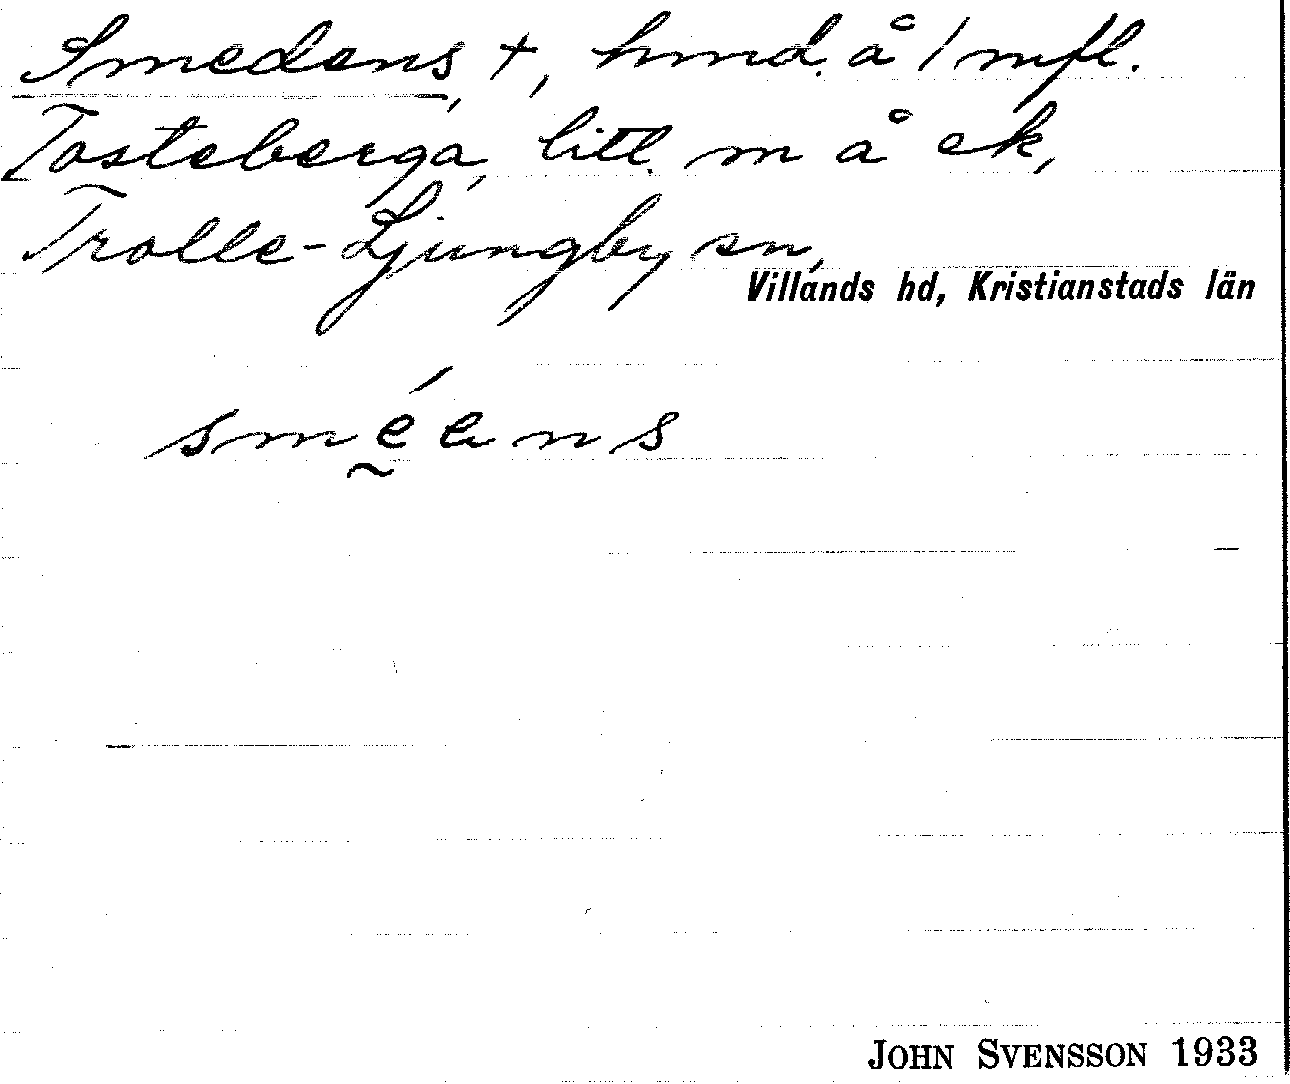 Smedens +, hmd. å 1 mfl.
Tosteberga, litt. m å ek,
Trolle-Ljungby sn,
Villands hd, Kristianstads län
sméens
JOHN SVENSSON 1933